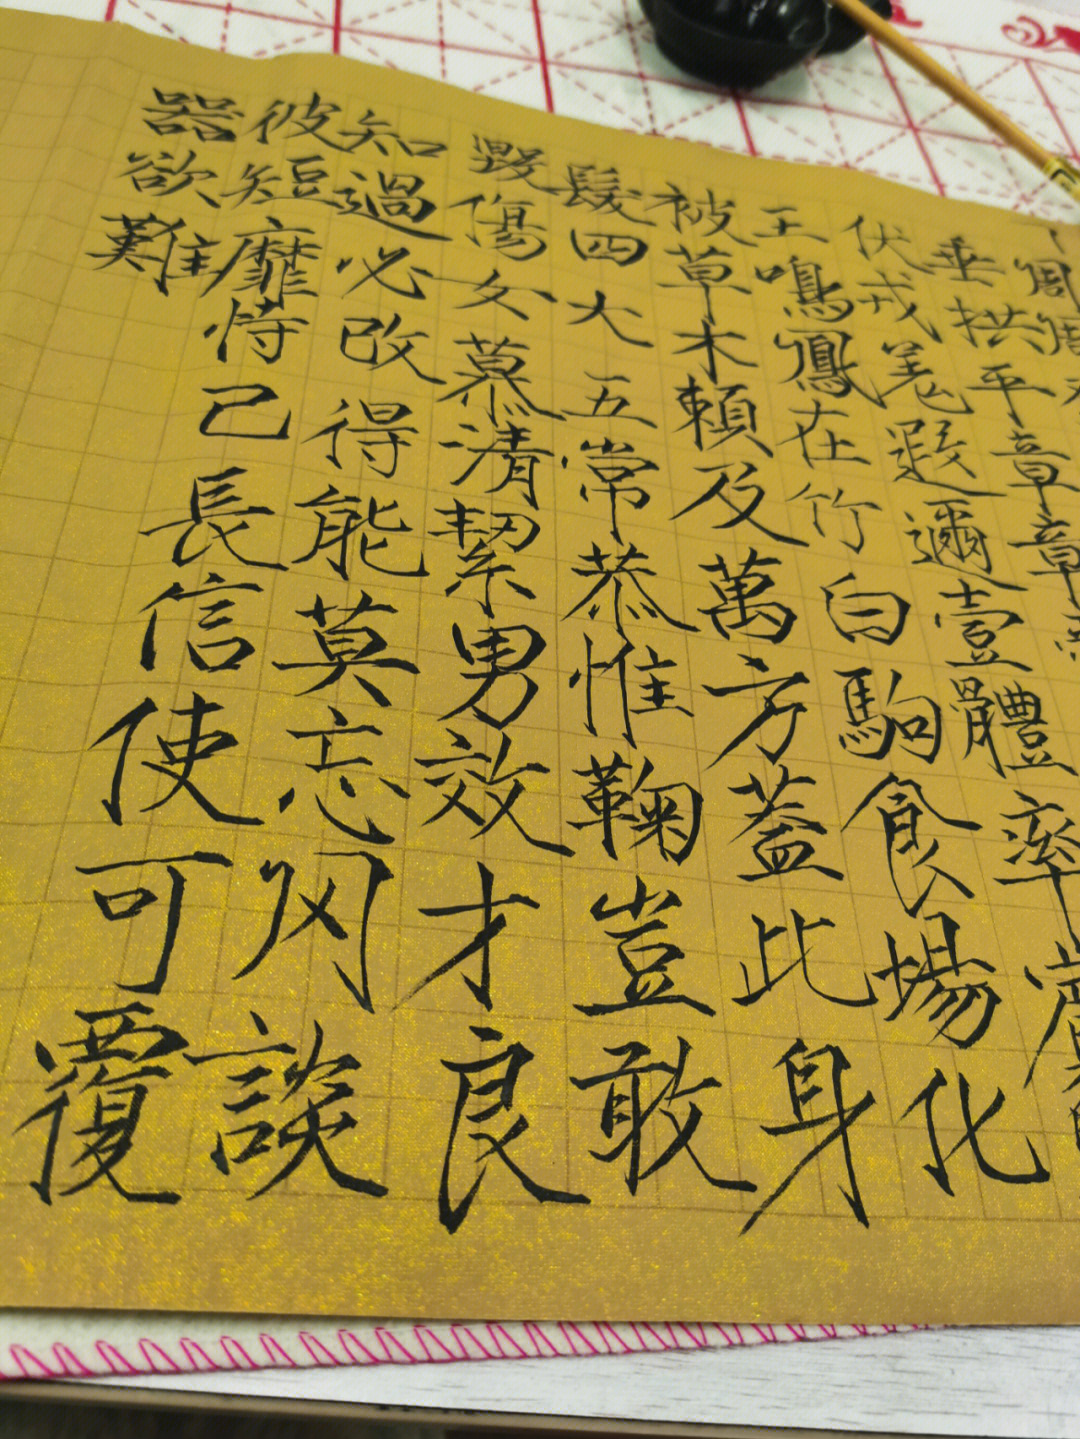 周周
垂拱平章章
伏戎羌遐邇壹體率賓
王鳴鳳在竹白駒食場化
被草木賴及萬方蓋此身
髮四大五常恭惟鞠豈敢
毀傷女慕清絜男效才良
知過必改得能莫忘罔談
彼短靡恃己長信使可覆
器欲難